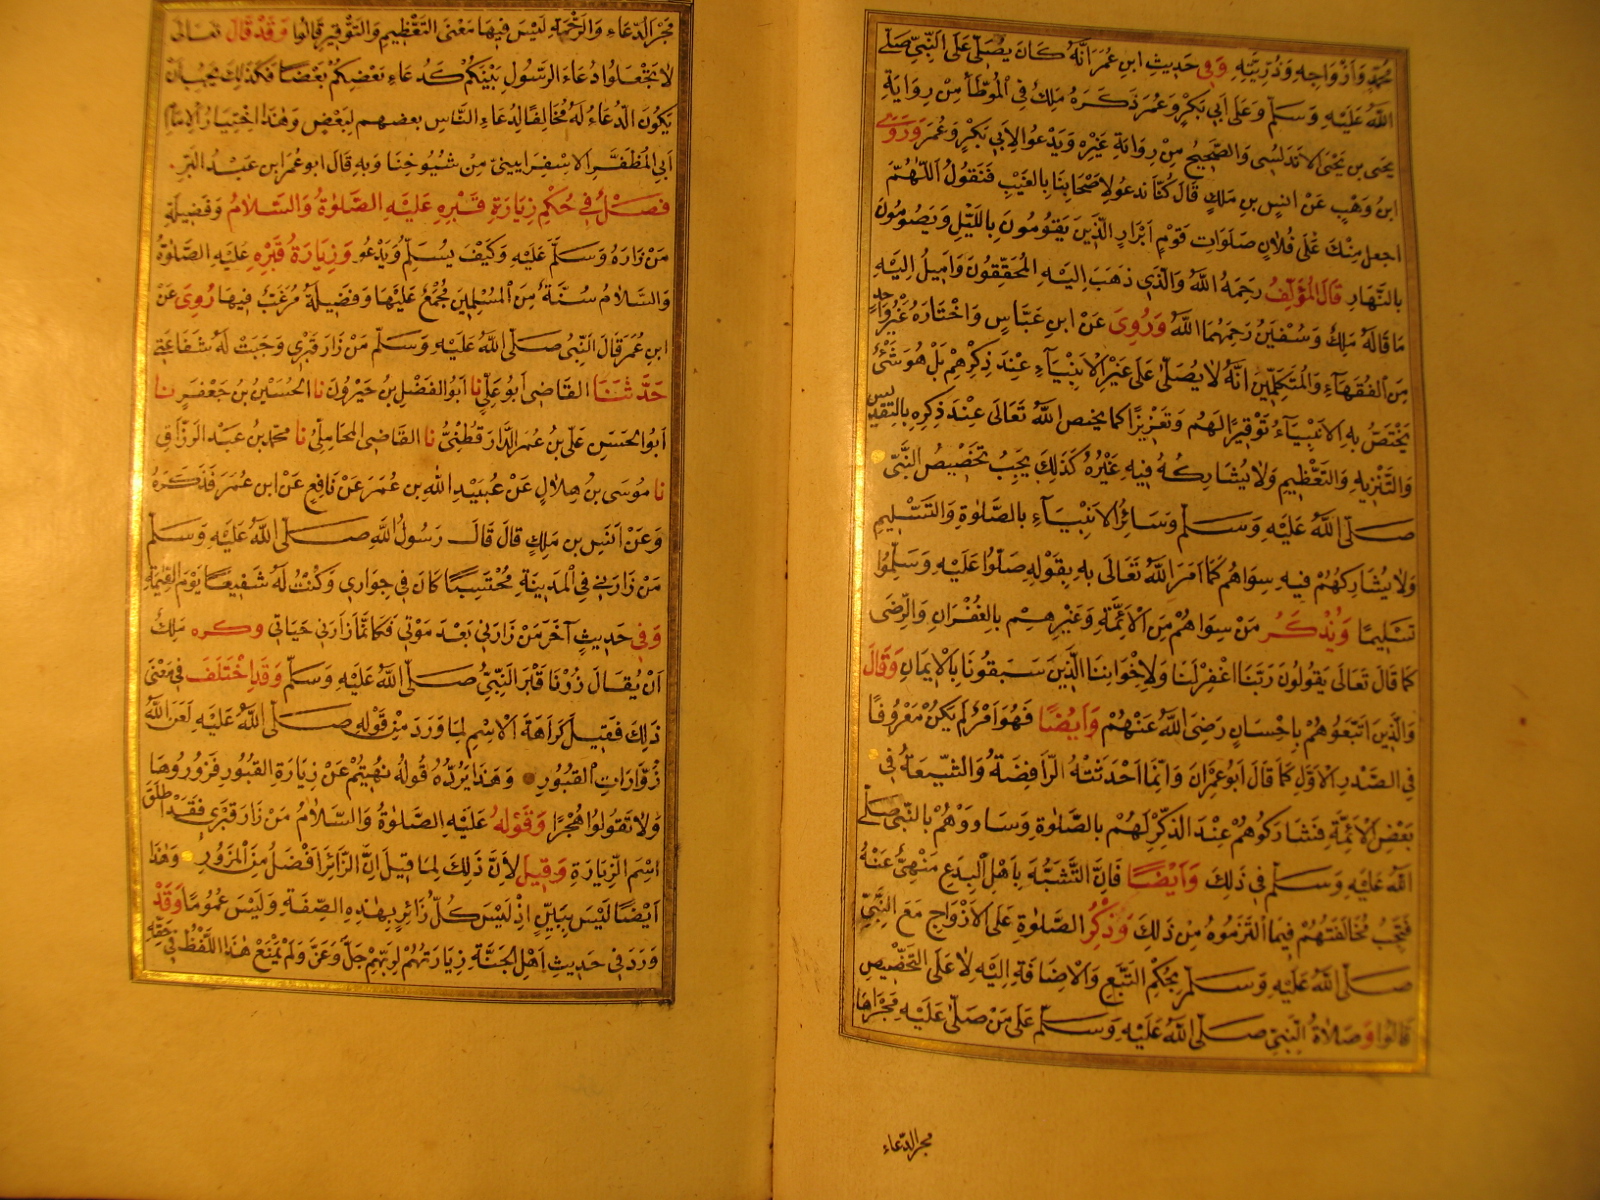 محمد وازواجه وذريته وفي حديث ابن عمر انه كان يصلي على النبي صلى
الله عليه وسلم وعلى ابي بكر وعمر ذكره ملك في الموطأ من رواية
يحيى بن يحيى الاندلسى والصحيح من رواية غيره ويدعو لابي بكر وعمر وروى
ابن وهب عن انس بن ملك قال كنا ندعو لاصحابنا بالغيب فنقول اللهم
اجعل منك على فلان صلوات قوم ابرار الذين يقومون بالليل ويصومون
بالنهار قال المؤلف رحمه الله والذي ذهب اليه المحققون واميل اليه
ما قاله ملك وسفين رحمهما الله وروى عن ابن عباس واختاره غير واحد
من الفقهاء والمتكلمين انه لا يصلى على غير الانبياء عند ذكرهم بل هو شئ
يختص به الانبياء توقيرا لهم وتعزيزا كما يخص الله تعالى عند ذكره بالتقديس
والتنزيه والتعظيم ولا يشاركه فيه غيره كذلك يجب تخصيص النبي
صلى الله عليه وسلم وسائر الانبياء بالصلوة والتسليم
ولا يشاركهم فيه سواهم كما امر الله تعالى به بقوله صلوا عليه وسلموا
تسليما ويذكر من سواهم من الائمة وغيرهم بالغفران والرضى
كما قال تعالى يقولون ربنا اغفر لنا ولاخواننا الذين سبقونا بالايمان وقال
والذين اتبعوهم باحسان رضى الله عنهم وايضا فهو امر لم يكن معروفا
في الصدر الاول كما قال ابو عمران وانما احدثته الرافضة والشيعة في
بعض الائمة فشاركوهم عند الذكر لهم بالصلوة وساووهم بالنبي صلى
الله عليه وسلم في ذلك وايضا فان التشبه باهل البدع منهى عنه
فتجب مخالفتهم فيما التزموه من ذلك وذكر الصلوة على الازواج مع النبي
صلى الله عليه وسلم بحكم التبع والاضافة اليه لا على التخصيص
قالوا وصلاة النبي صلى الله عليه وسلم على من صلى عليه مجراها
مجرالدعاء
مجر الدعاء والرحمة ليس فيها معنى التعظيم والتوقير قالوا وقد قال تعالى
لا تجعلوا دعاء الرسول بينكم كدعاء بعضكم بعضا فكذلك يجب ان
يكون الدعاء له مخالفا لدعاء الناس بعضهم لبعض وهذا اختيار الامام
ابي المظفر الاسفرايينى من شيوخنا وبه قال ابو عمر ابن عبد البر
فصل في حكم زيارة قبره عليه الصلوة والسلام وفضيلة
من زاره وسلم عليه وكيف يسلم ويدعو وزيارة قبره عليه الصلوة
والسلام سنة من المسلمين مجمع عليها وفضيلة مرغب فيها روى عن
ابن عمر قال النبى صلى الله عليه وسلم من زار قبرى وجبت له شفاعتى
حدثنا القاضى ابو علي نا ابو الفضل بن خيرون نا الحسين بن جعفر نا
ابو الحسن على بن عمر الدارقطنى نا القاضى المحاملى نا محمد بن عبد الرزاق
نا موسى بن هلال عن عبيد الله بن عمر عن نافع عن ابن عمر فذكره
وعن انس بن ملك قال قال رسول الله صلى الله عليه وسلم
من زارني في المدينة محتسبا كان في جوارى وكنت له شفيعا يوم القيمة
وفي حديث آخر من زارني بعد موتي فكانما زارني حياتي وكره ملك
ان يقال زرنا قبر النبي صلى الله عليه وسلم وقد اختلف في معنى
ذلك فقيل كراهة الاسم لما ورد من قوله صلى الله عليه لعن الله
زوارات القبور وهذا يرده قوله نهيتم عن زيارة القبور فزوروها
ولا تقولوا هجرا وقوله عليه الصلوة والسلام من زار قبري فقد اطلق
اسم الزيارة وقيل لان ذلك لما قيل ان الزائر افضل من المزور وهذا
ايضا ليس ببين اذ ليس كل زائر بهذه الصفة وليس عموما وقد
ورد في حديث اهل الجنة زيارتهم لربهم جل وعز ولم يمنع هذا اللفظ في حقه